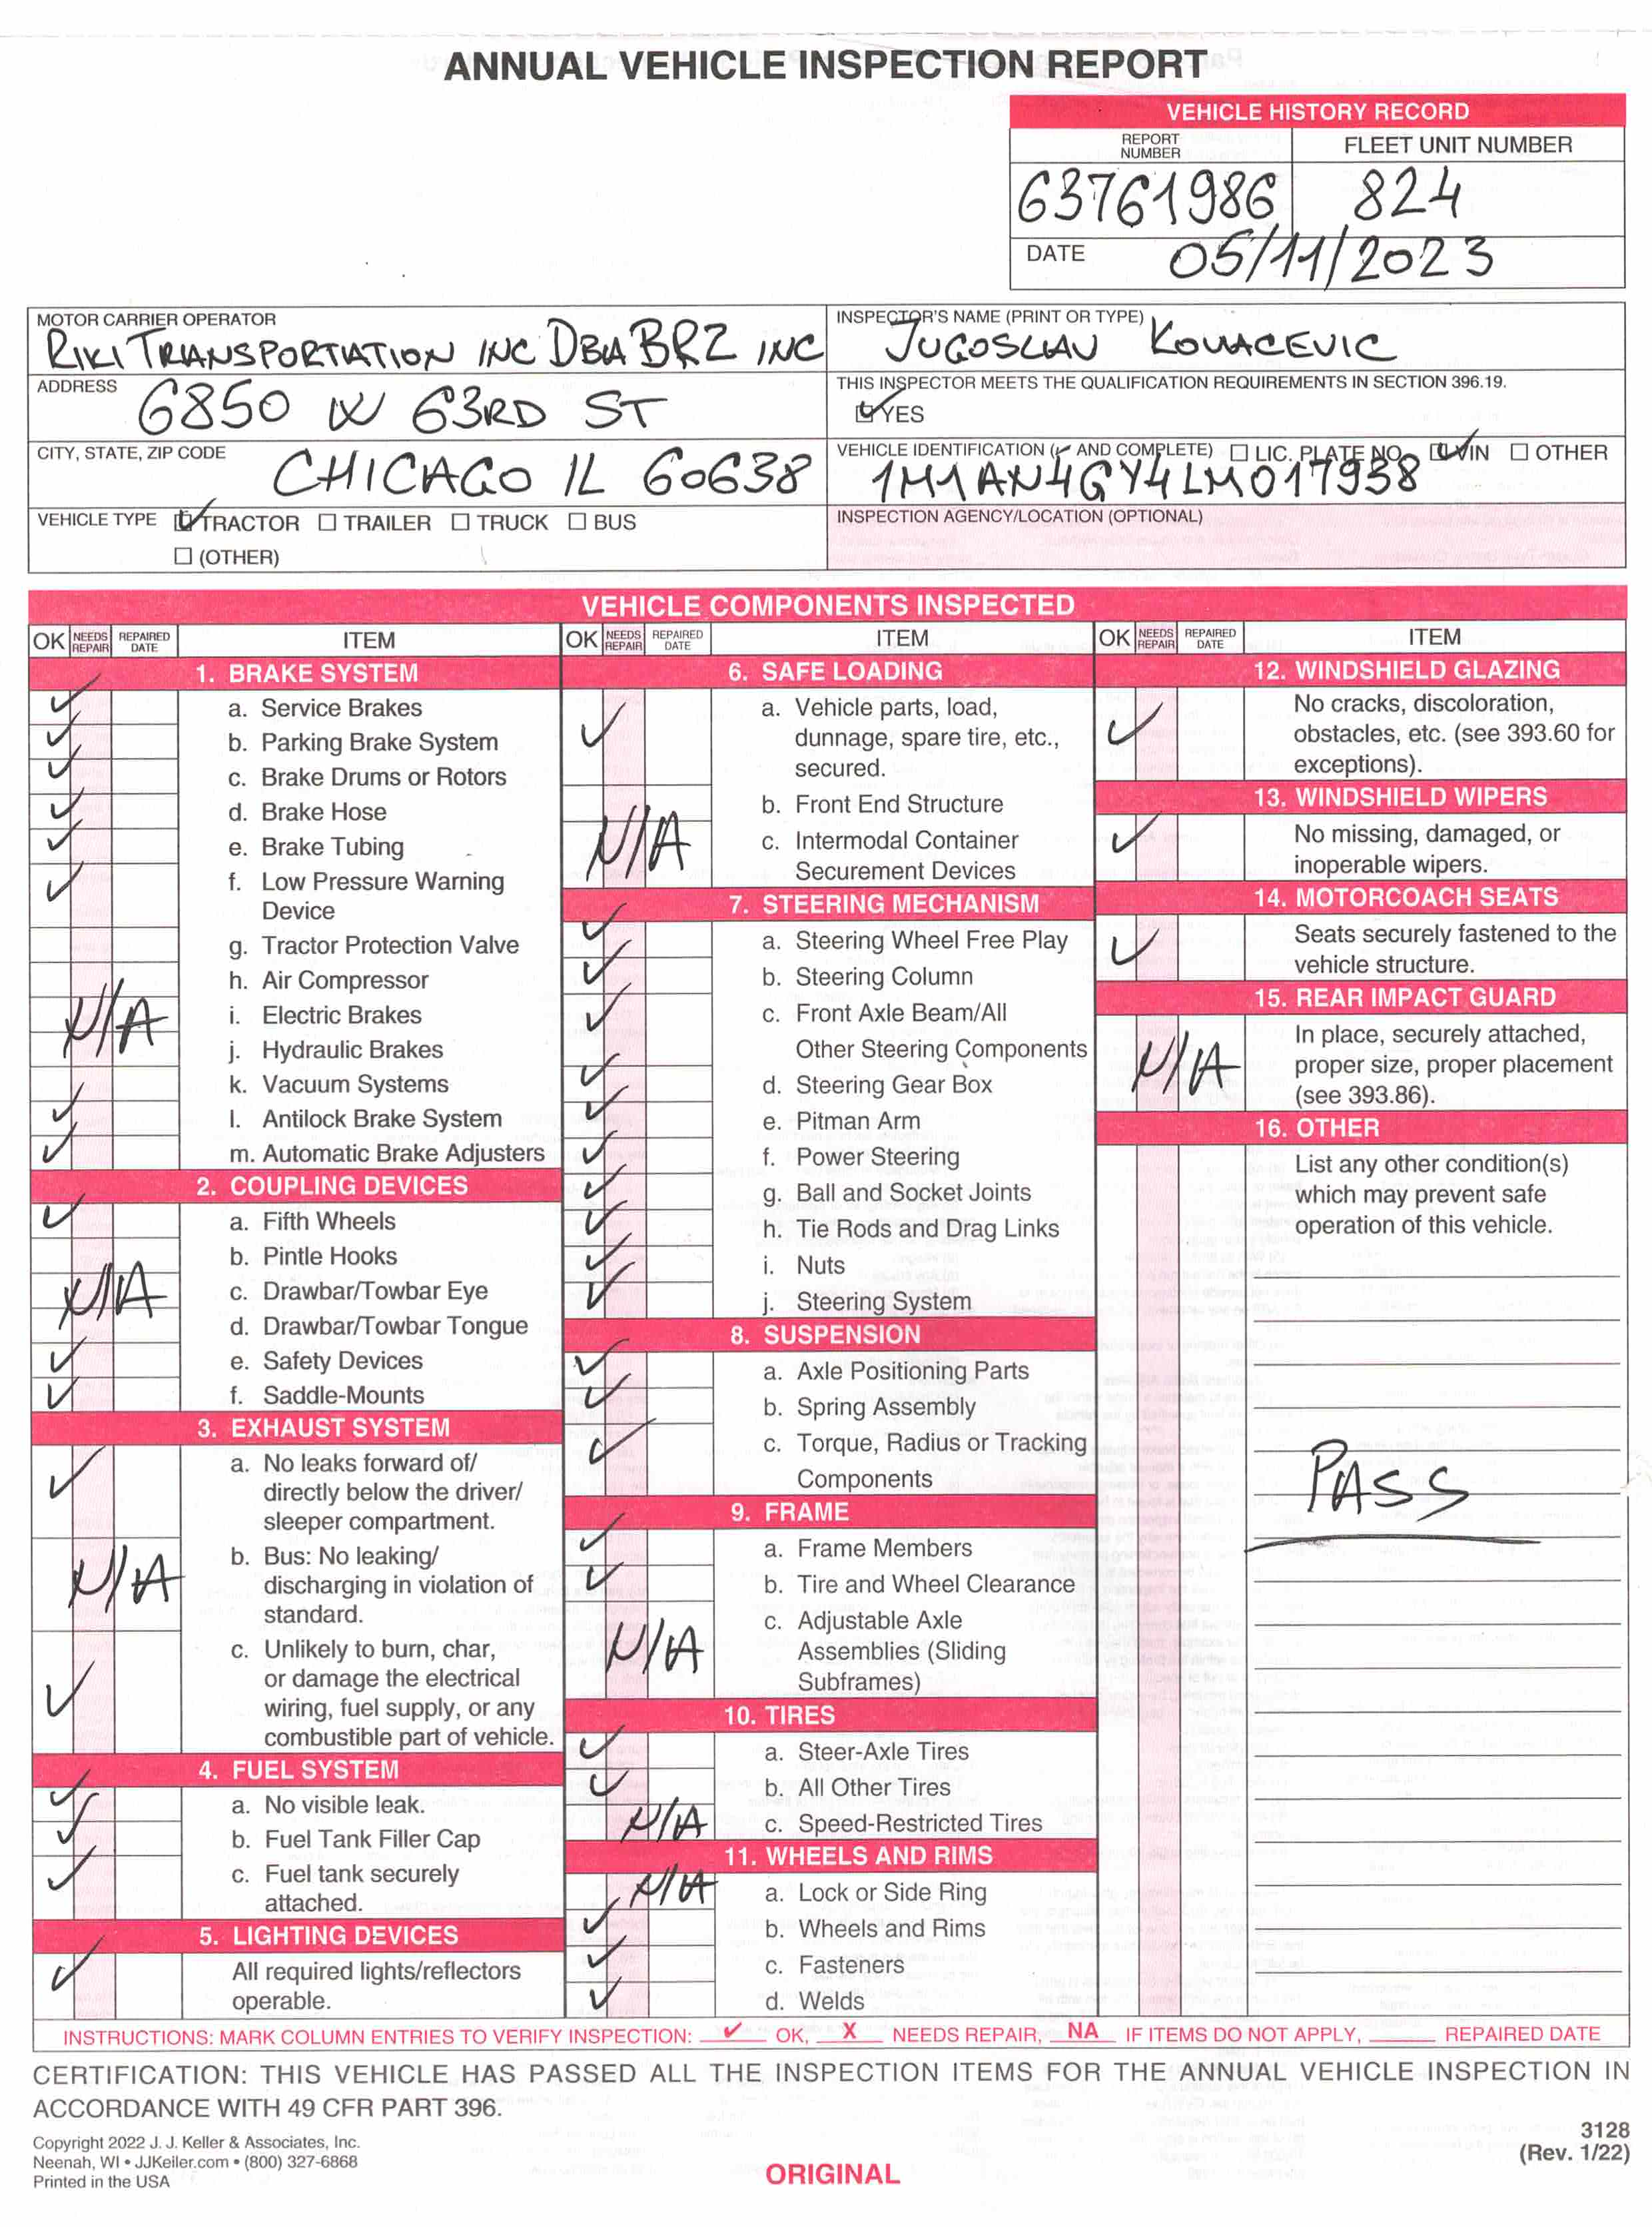 ANNUAL VEHICLE INSPECTION REPORT
VEHICLE HISTORY RECORD
REPORT NUMBER
FLEET UNIT NUMBER
63761986
824
DATE 05/11/2023
MOTOR CARRIER OPERATOR
RIKI TRANSPORTATION INC DBA BRZ INC
INSPECTOR'S NAME (PRINT OR TYPE)
JUGOSLAV KOVACEVIC
ADDRESS
6850 W 63RD ST
THIS INSPECTOR MEETS THE QUALIFICATION REQUIREMENTS IN SECTION 396.19.
✓ YES
CITY, STATE, ZIP CODE
CHICAGO IL 60638
VEHICLE IDENTIFICATION (✓ AND COMPLETE) ☐ LIC. PLATE NO. ✓ VIN ☐ OTHER
1M1AN4GY4LM017938
VEHICLE TYPE ✓ TRACTOR ☐ TRAILER ☐ TRUCK ☐ BUS
☐ (OTHER)
INSPECTION AGENCY/LOCATION (OPTIONAL)
VEHICLE COMPONENTS INSPECTED
OK NEEDS REPAIR REPAIRED DATE ITEM
1. BRAKE SYSTEM
✓ a. Service Brakes
✓ b. Parking Brake System
✓ c. Brake Drums or Rotors
✓ d. Brake Hose
✓ e. Brake Tubing
✓ f. Low Pressure Warning
Device
g. Tractor Protection Valve
h. Air Compressor
N/A i. Electric Brakes
j. Hydraulic Brakes
k. Vacuum Systems
✓ l. Antilock Brake System
✓ m. Automatic Brake Adjusters
2. COUPLING DEVICES
✓ a. Fifth Wheels
b. Pintle Hooks
N/A c. Drawbar/Towbar Eye
d. Drawbar/Towbar Tongue
✓ e. Safety Devices
✓ f. Saddle-Mounts
3. EXHAUST SYSTEM
✓ a. No leaks forward of/
directly below the driver/
sleeper compartment.
N/A b. Bus: No leaking/
discharging in violation of
standard.
✓ c. Unlikely to burn, char,
or damage the electrical
wiring, fuel supply, or any
combustible part of vehicle.
4. FUEL SYSTEM
✓ a. No visible leak.
✓ b. Fuel Tank Filler Cap
✓ c. Fuel tank securely
attached.
5. LIGHTING DEVICES
✓ All required lights/reflectors
operable.
OK NEEDS REPAIR REPAIRED DATE ITEM
6. SAFE LOADING
✓ a. Vehicle parts, load,
dunnage, spare tire, etc.,
secured.
b. Front End Structure
N/A c. Intermodal Container
Securement Devices
7. STEERING MECHANISM
✓ a. Steering Wheel Free Play
✓ b. Steering Column
✓ c. Front Axle Beam/All
Other Steering Components
✓ d. Steering Gear Box
✓ e. Pitman Arm
✓ f. Power Steering
✓ g. Ball and Socket Joints
✓ h. Tie Rods and Drag Links
✓ i. Nuts
✓ j. Steering System
8. SUSPENSION
✓ a. Axle Positioning Parts
✓ b. Spring Assembly
✓ c. Torque, Radius or Tracking
Components
9. FRAME
✓ a. Frame Members
✓ b. Tire and Wheel Clearance
N/A c. Adjustable Axle
Assemblies (Sliding
Subframes)
10. TIRES
✓ a. Steer-Axle Tires
✓ b. All Other Tires
N/A c. Speed-Restricted Tires
11. WHEELS AND RIMS
N/A a. Lock or Side Ring
✓ b. Wheels and Rims
✓ c. Fasteners
✓ d. Welds
OK NEEDS REPAIR REPAIRED DATE ITEM
12. WINDSHIELD GLAZING
✓ No cracks, discoloration,
obstacles, etc. (see 393.60 for
exceptions).
13. WINDSHIELD WIPERS
✓ No missing, damaged, or
inoperable wipers.
14. MOTORCOACH SEATS
✓ Seats securely fastened to the
vehicle structure.
15. REAR IMPACT GUARD
N/A In place, securely attached,
proper size, proper placement
(see 393.86).
16. OTHER
List any other condition(s)
which may prevent safe
operation of this vehicle.
PASS
INSTRUCTIONS: MARK COLUMN ENTRIES TO VERIFY INSPECTION: ✓ OK, X NEEDS REPAIR, NA IF ITEMS DO NOT APPLY, ____ REPAIRED DATE
CERTIFICATION: THIS VEHICLE HAS PASSED ALL THE INSPECTION ITEMS FOR THE ANNUAL VEHICLE INSPECTION IN
ACCORDANCE WITH 49 CFR PART 396.
Copyright 2022 J. J. Keller & Associates, Inc.
Neenah, WI • JJKeller.com • (800) 327-6868
Printed in the USA
ORIGINAL
3128
(Rev. 1/22)